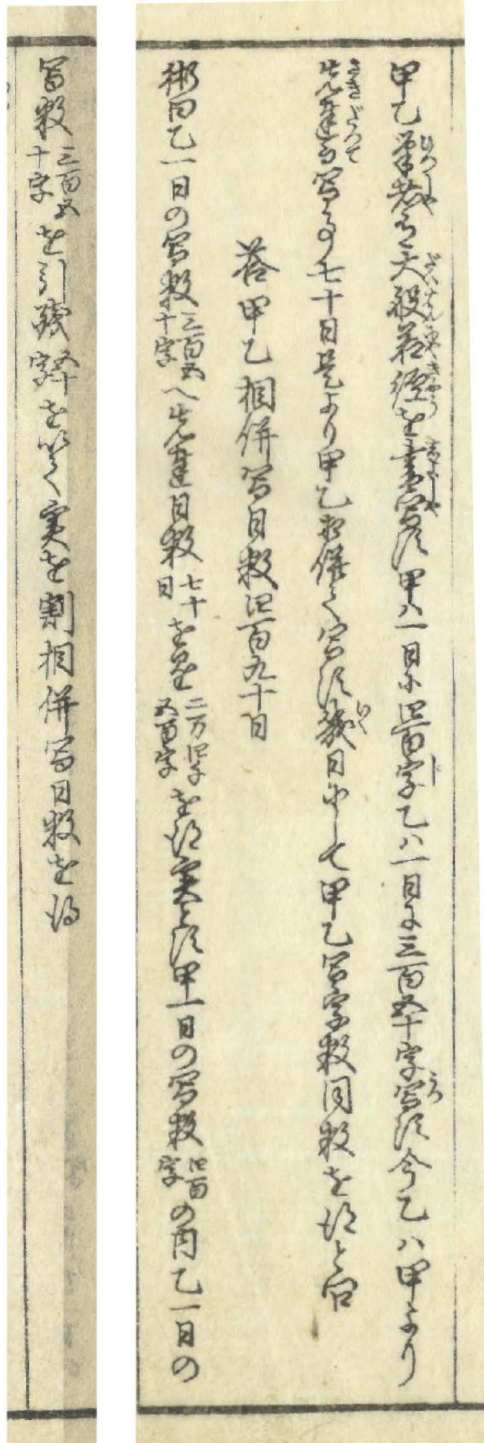 甲乙筆者有大般若経を書写す甲ハ一日に四百字乙ハ一日に三百五十字写す今乙ハ甲より
先達而写る事七十日是より甲乙相併て写す幾日にして甲乙写字数同数を得と問
答甲乙相併写日数四百九十日
術曰乙一日の写数三百五十字へ先達日数七十日を乗二万四千五百字を得実とす甲一日の写数四百字の内乙一日の
写数三百五十字を引残五十字を以て実を割相併写日数を得